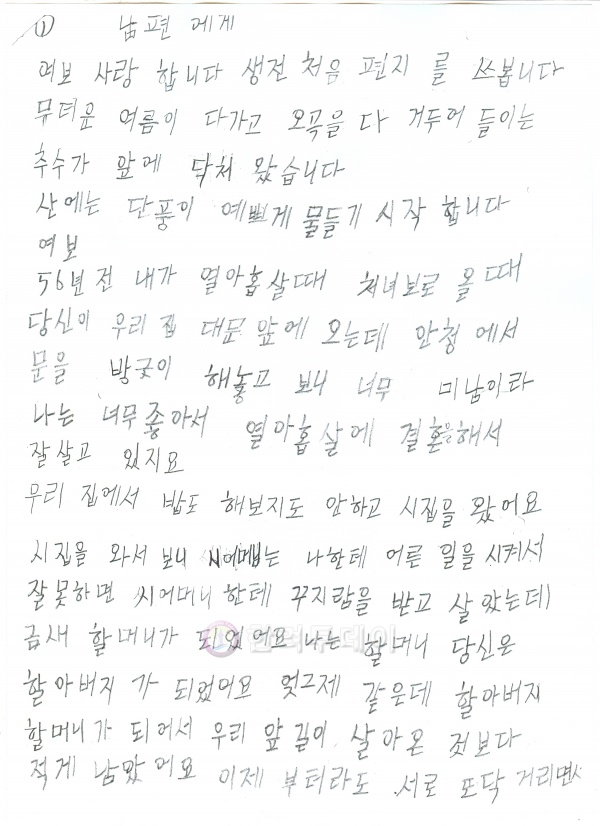 ① 남편 에게
여보 사랑 합니다 생전 처음 편지 를 쓰봅니다
뮤터운 여름이 다가고 오곡을 다 거두어 들이는
추수가 앞에 닥처 왔습니다
산에는 단풍이 예쁘게 물들기 시작 합니다
여보
56년전 내가 열아홉살때 처녀보로 올때
당신이 우리집 대문앞에 오는데 안청에서
문을 방굿이 해놓고 보니 너무 미남이라
나는 너무좋아서 열아홉살에 결혼을해서
잘살고 있지요
우리 집에서 밥도 해보지도 안하고 시집을 왔어요
시집을 와서 보니 시어메는 나한테 어른 일을 시켜서
잘못하면 씨어머니한테 꾸지람을 받고 살았는데
금새 할머니가 되었어요 나는 할머니 당신은
할아버지 가 되었어요 엊그제 같은데 할아버지
할머니가 되어서 우리 앞길이 살아온 것보다
적게 남았어요 이제 부터라도 서로 또닥 거리면서